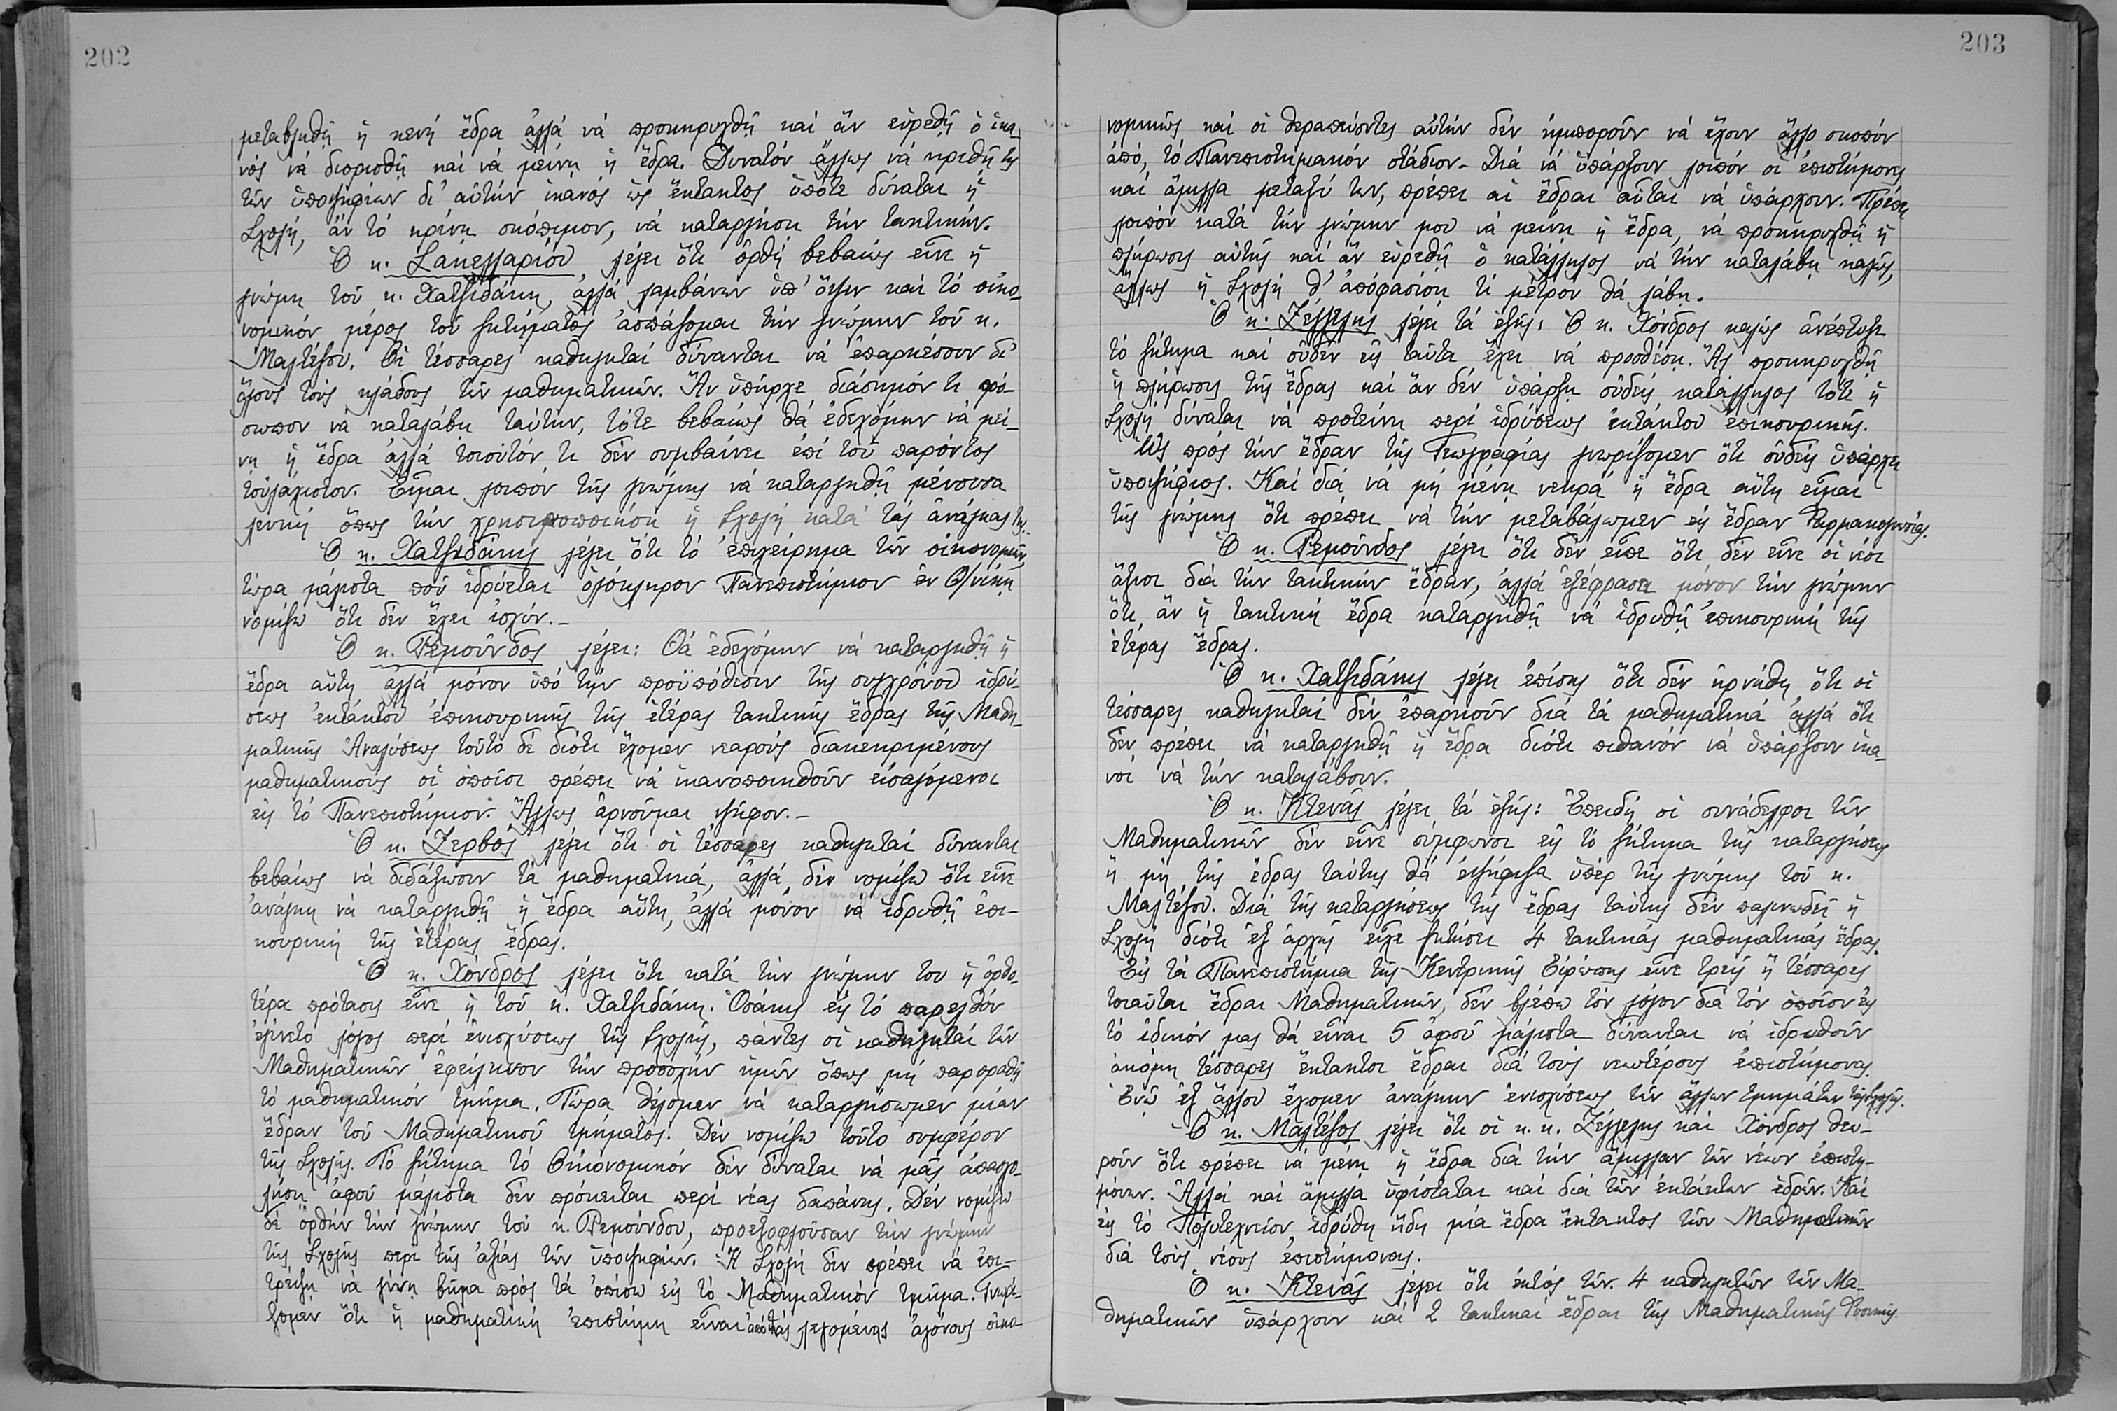 202
μεταβληθῇ ἡ κενή ἕδρα ἀλλά νά προκηρυχθῇ καί ἄν εὑρεθῇ ὁ ἱκα-
νός νά διορισθῇ καί νά μείνῃ ἡ ἕδρα. Δυνατόν ἄλλως νά κριθῇ τις
τῶν ὑποψηφίων δι' αὐτήν ἱκανός ὡς ἔκτακτος ὑπότε δύναται ἡ
Σχολή, ἄν τό κρίνῃ σκόπιμον, νά καταργήσῃ τήν τακτικήν.
Ὁ κ. Σακελλαρίου λέγει ὅτι ὀρθή βεβαίως εἶνε ἡ
γνώμη τοῦ κ. Χατζιδάκη, ἀλλά λαμβάνων ὑπ' ὄψιν καί τό οἰκο-
νομικόν μέρος τοῦ ζητήματος ἀσπάζομαι τήν γνώμην τοῦ κ.
Μαλτέζου. Οἱ τέσσαρες καθηγηταί δύνανται νά ἐπαρκέσουν δι'
ὅλους τούς κλάδους τῶν μαθηματικῶν. Ἄν ὑπῆρχε διάσημόν τι πρό-
σωπον νά καταλάβῃ ταύτην, τότε βεβαίως θά ἐδεχόμην νά μεί-
νῃ ἡ ἕδρα ἀλλά τοιοῦτόν τι δέν συμβαίνει ἐπί τοῦ παρόντος
τοὐλάχιστον. Εἶμαι λοιπόν τῆς γνώμης νά καταργηθῇ μένουσα
γενική ὅπως τήν χρησιμοποιήσῃ ἡ Σχολή κατά τάς ἀνάγκας της.
Ὁ κ. Χατζιδάκης λέγει ὅτι τό ἐπιχείρημα τῶν οἰκονομιῶν
τώρα μάλιστα πού ἱδρύεται ὁλόκληρον Πανεπιστήμιον ἐν Θ/νίκῃ
νομίζω ὅτι δέν ἔχει ἰσχύν.-
Ὁ κ. Ρεμοῦνδος λέγει: Θά ἐδεχόμην νά καταργηθῇ ἡ
ἕδρα αὕτη ἀλλά μόνον ὑπό τήν προϋπόθεσιν τῆς συγχρόνου ἱδρύ-
σεως ἐκτάκτου ἐπικουρικῆς τῆς ἑτέρας τακτικῆς ἕδρας τῆς Μαθη-
ματικῆς Ἀναλύσεως τοῦτο δέ διότι ἔχομεν νεαρούς διακεκριμένους
μαθηματικούς οἱ ὁποῖοι πρέπει νά ἱκανοποιηθοῦν εἰσαγόμενοι
εἰς τό Πανεπιστήμιον. Ἄλλως ἀρνοῦμαι ψῆφον.-
Ὁ κ. Ζερβός λέγει ὅτι οἱ τέσσαρες καθηγηταί δύνανται
βεβαίως νά διδάξωσιν τά μαθηματικά, ἀλλά δέν νομίζω ὅτι εἶνε
ἀνάγκη νά καταργηθῇ ἡ ἕδρα αὕτη, ἀλλά μόνον νά ἱδρυθῇ ἐπι-
κουρική τῆς ἑτέρας ἕδρας.
Ὁ κ. Χόνδρος λέγει ὅτι κατά τήν γνώμην του ἡ ὀρθο-
τέρα πρότασις εἶνε ἡ τοῦ κ. Χατζιδάκη. Ὁσάκις εἰς τό παρελθόν
ἐγένετο λόγος περί ἐνισχύσεως τῆς Σχολῆς, πάντες οἱ καθηγηταί τῶν
Μαθηματικῶν ἐφείλκυον τήν προσοχήν ἡμῶν ὅπως μή παροραθῇ
τό μαθηματικόν τμῆμα. Τώρα θέλομεν νά καταργήσωμεν μίαν
ἕδραν τοῦ Μαθηματικοῦ τμήματος. Δέν νομίζω τοῦτο συμφέρον
τῆς Σχολῆς. Τό ζήτημα τό Οἰκονομικόν δέν δύναται νά μᾶς ἀπασχο-
λήσῃ ἀφοῦ μάλιστα δέν πρόκειται περί νέας δαπάνης. Δέν νομίζω
δέ ὀρθήν τήν γνώμην τοῦ κ. Ρεμούνδου, προεξοφλοῦσαν τήν γνώμην
τῆς Σχολῆς περί τῆς ἀξίας τῶν ὑποψηφίων. Ἡ Σχολή δέν πρέπει νά ἐπι-
τρέψῃ νά γίνῃ βῆμα πρός τά ὀπίσω εἰς τό Μαθηματικόν τμῆμα. Γνωρί-
ζομεν ὅτι ἡ μαθηματική ἐπιστήμη εἶναι ἀπό τάς λεγομένας ἀγόνους οἰκο-
203
νομικῶς καί οἱ θεραπεύοντες αὐτήν δέν ἠμποροῦν νά ἔχουν ἄλλο σκοπόν
ἀπό, τό Πανεπιστημιακόν στάδιον.- Διά νά ὑπάρξουν λοιπόν οἱ ἐπιστήμονες
καί ἅμιλλα μεταξύ των, πρέπει αἱ ἕδραι αὗται νά ὑπάρχουν. Πρέπει
λοιπόν κατά τήν γνώμην μου νά μείνῃ ἡ ἕδρα, νά προκηρυχθῇ ἡ
πλήρωσις αὐτῆς καί ἄν εὑρεθῇ ὁ κατάλληλος νά τήν καταλάβῃ καλῶς,
ἄλλως ἡ Σχολή θ' ἀποφασίσῃ τί μέτρον θά λάβῃ.
Ὁ κ. Ζέγγελης λέγει τά ἑξῆς: Ὁ κ. Χόνδρος καλῶς ἀνέπτυξε
τό ζήτημα καί οὐδέν εἰς ταῦτα ἔχει νά προσθέσῃ. Ἄς προκηρυχθῇ
ἡ πλήρωσις τῆς ἕδρας καί ἄν δέν ὑπάρξῃ οὐδείς κατάλληλος τότε ἡ
Σχολή δύναται νά προτείνῃ περί ἱδρύσεως ἐκτάκτου ἐπικουρικῆς.
Ὡς πρός τήν ἕδραν τῆς Γεωγραφίας γνωρίζομεν ὅτι οὐδείς ὑπάρχει
ὑποψήφιος. Καί διά νά μή μένῃ νεκρά ἡ ἕδρα αὕτη εἶμαι
τῆς γνώμης ὅτι πρέπει νά τήν μεταβάλωμεν εἰς ἕδραν Φαρμακογνωσίας.
Ὁ κ. Ρεμοῦνδος λέγει ὅτι δέν εἶπε ὅτι δέν εἶνε οἱ νέοι
ἄξιοι διά τήν τακτικήν ἕδραν, ἀλλά ἐξέφρασα μόνον τήν γνώμην
ὅτι ἄν ἡ τακτική ἕδρα καταργηθῇ νά ἱδρυθῇ ἐπικουρική τῆς
ἑτέρας ἕδρας.
Ὁ κ. Χατζιδάκης λέγει ἐπίσης ὅτι δέν ἠρνήθη ὅτι οἱ
τέσσαρες καθηγηταί δέν ἐπαρκοῦν διά τά μαθηματικά ἀλλά ὅτι
δέν πρέπει νά καταργηθῇ ἡ ἕδρα διότι πιθανόν νά ὑπάρξουν ἱκα-
νοί νά τήν καταλάβουν.
Ὁ κ. Κτενᾶς λέγει τά ἑξῆς: Ἐπειδή οἱ συνάδελφοι τῶν
Μαθηματικῶν δέν εἶνε σύμφωνοι εἰς τό ζήτημα τῆς καταργήσεως
ἤ μή τῆς ἕδρας ταύτης θά ἐψήφιζα ὑπέρ τῆς γνώμης τοῦ κ.
Μαλτέζου. Διά τῆς καταργήσεως τῆς ἕδρας ταύτης δέν παλινωδεῖ ἡ
Σχολή διότι ἐξ ἀρχῆς εἶχε ζητήσει 4 τακτικάς μαθηματικάς ἕδρας.
Εἰς τά Πανεπιστήμια τῆς Κεντρικῆς Εὐρώπης εἶνε τρεῖς ἤ τέσσαρες
τοιαῦται ἕδραι Μαθηματικῶν, δέν βλέπω τόν λόγον διά τόν ὁποῖον εἰς
τό ἰδικόν μας θά εἶναι 5 ἀφοῦ μάλιστα δύνανται νά ἱδρυθοῦν
ἀκόμη τέσσαρες ἔκτακτοι ἕδραι διά τούς νεωτέρους ἐπιστήμονας.
Ἐνῶ ἐξ ἄλλου ἔχομεν ἀνάγκην ἐνισχύσεως τῶν ἄλλων τμημάτων τῆς Σχολῆς.
Ὁ κ. Μαλτέζος λέγει ὅτι οἱ κ.κ. Ζέγγελης καί Χόνδρος θεω-
ροῦν ὅτι πρέπει νά μένῃ ἡ ἕδρα διά τήν ἅμιλλαν τῶν νέων ἐπιστη-
μόνων. Ἀλλά καί ἅμιλλα ὑφίσταται καί διά τῶν ἐκτάκτων ἑδρῶν. Καί
εἰς τό Πολυτεχνεῖον ἱδρύθη ἤδη μία ἕδρα ἔκτακτος τῶν Μαθηματικῶν
διά τούς νέους ἐπιστήμονας.
Ὁ κ. Κτενᾶς λέγει ὅτι ἐκτός τῶν 4 καθηγητῶν τῶν Μα-
θηματικῶν ὑπάρχουν καί 2 τακτικαί ἕδραι τῆς Μαθηματικῆς Φυσικῆς